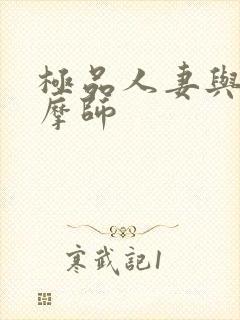 極品人妻與
摩師
寒武記1